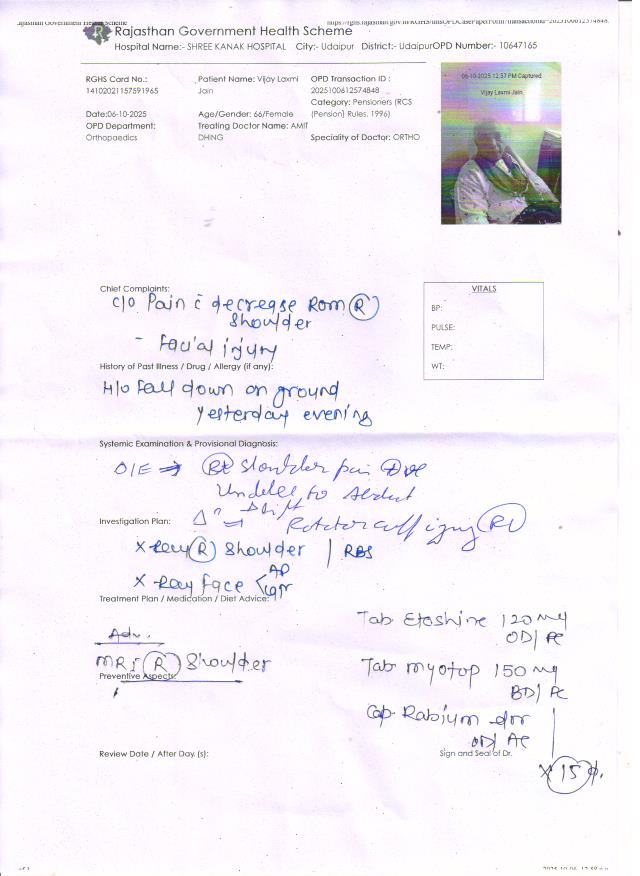 Rajasthan Government Health Scheme
Hospital Name:- SHREE KANAK HOSPITAL City:- Udaipur District:- UdaipurOPD Number:- 10647165
RGHS Card No.: 14102021157591965
Patient Name: Vijay Laxmi Jain
OPD Transaction ID : 2025100612574848
Category: Pensioners (RCS (Pension) Rules, 1996)
Date:06-10-2025
Age/Gender: 66/Female
OPD Department: Orthopaedics
Treating Doctor Name: AMIT DHING
Speciality of Doctor: ORTHO
06-10-2025 12:57 PM Captured
Vijay Laxmi Jain
Chief Complaints:
C/o Pain c̄ decrease ROM (R)
Shoulder
- Facial injury
VITALS
BP:
PULSE:
TEMP:
WT:
History of Past Illness / Drug / Allergy (if any):
H/o Fall down on ground
Yesterday evening
Systemic Examination & Provisional Diagnosis:
O/E ⇒ (Rt) Shoulder pain
to Abduct
Investigation Plan:
Rotator cuff injury (R)
X-Ray (R) Shoulder | RBS
X-Ray Face < AP
Treatment Plan / Medication / Diet Advice:
Adv.
MRI (R) Shoulder
Preventive Aspects:
Tab Etoshine 120 mg
OD/ PC
Tab Myotop 150 mg
BD/ PC
Cap Rabium dsr
OD/ AC
x 15 d.
Review Date / After Day.(s):
Sign and Seal of Dr.